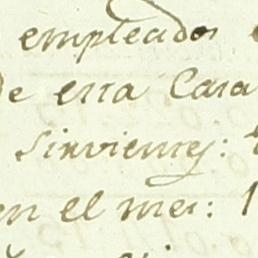 empleados
de esta Casa
Sirvientes:
en el mes: 1